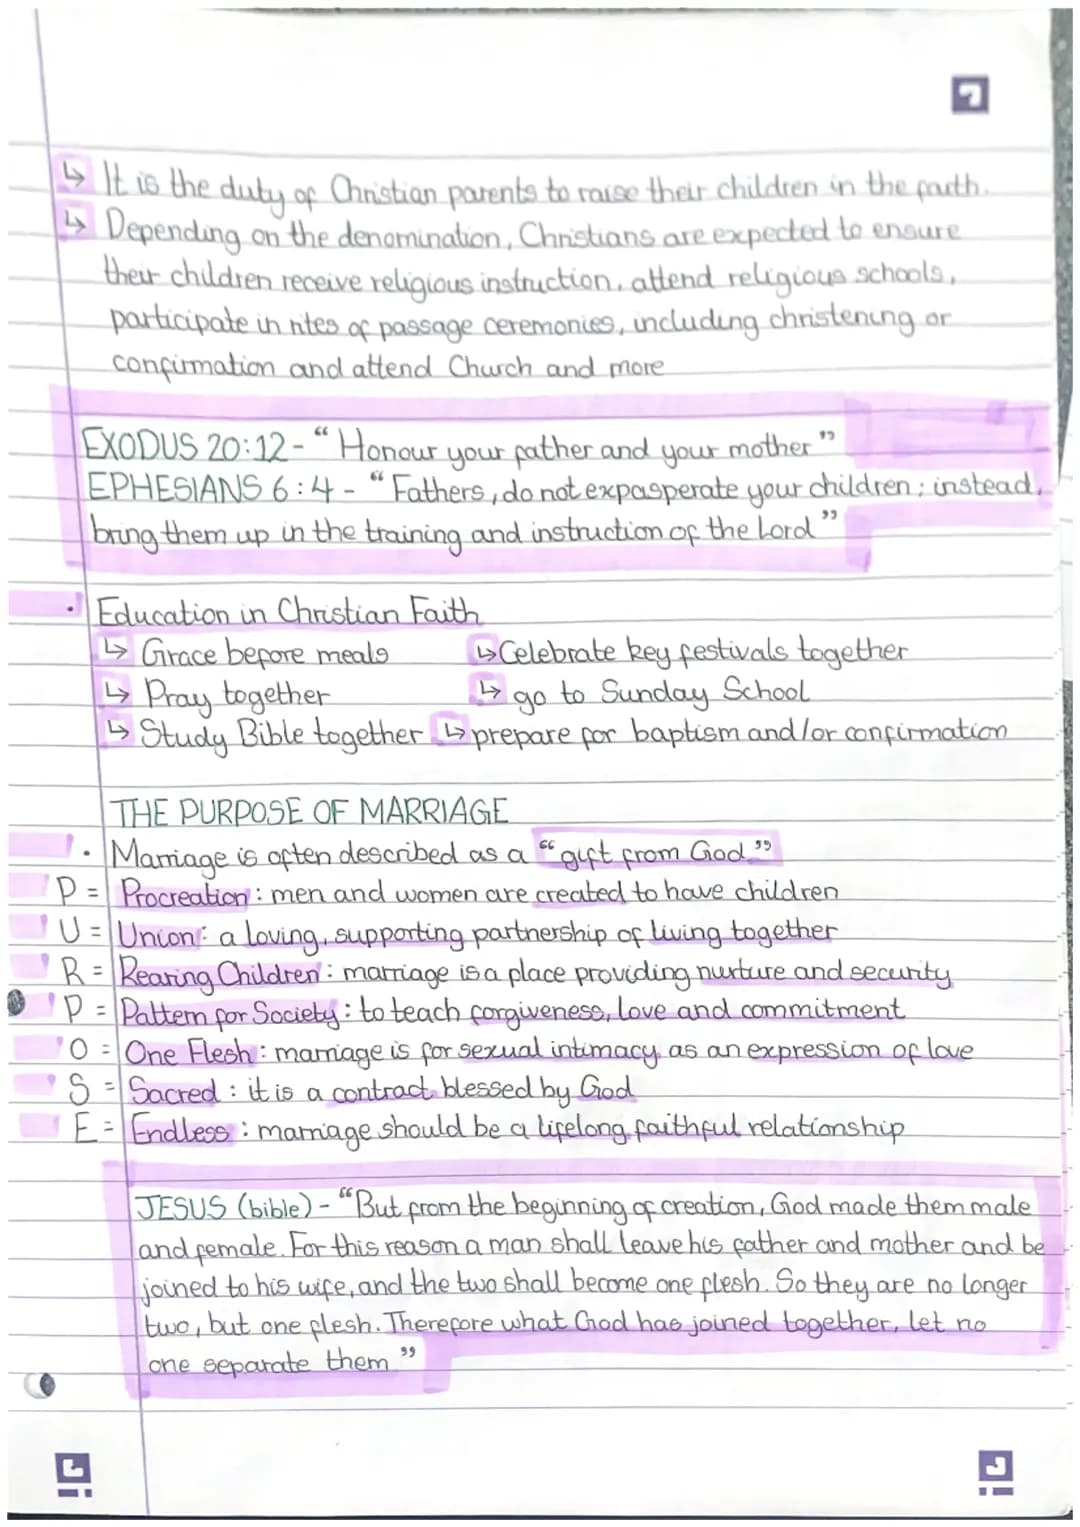 ↳ It is the duty of Christian parents to raise their children in the faith.
↳ Depending on the denomination, Christians are expected to ensure
their children receive religious instruction, attend religious schools,
participate in rites of passage ceremonies, including christening or
confirmation and attend Church and more
EXODUS 20:12 - “Honour your father and your mother”
EPHESIANS 6:4 - “Fathers, do not expasperate your children; instead,
bring them up in the training and instruction of the Lord”
• Education in Christian Faith
↳ Grace before meals ↳ Celebrate key festivals together
↳ Pray together ↳ go to Sunday School
↳ Study Bible together ↳ prepare for baptism and/or confirmation
THE PURPOSE OF MARRIAGE
• Marriage is often described as a “gift from God”
P = Procreation: men and women are created to have children
U = Union: a loving, supporting partnership of living together
R = Rearing Children: marriage is a place providing nurture and security
P = Pattern for Society: to teach forgiveness, love and commitment
O = One Flesh: marriage is for sexual intimacy as an expression of love
S = Sacred: it is a contract blessed by God
E = Endless: marriage should be a lifelong, faithful relationship
JESUS (bible) - “But from the beginning of creation, God made them male
and female. For this reason a man shall leave his father and mother and be
joined to his wife, and the two shall become one flesh. So they are no longer
two, but one flesh. Therefore what God has joined together, let no
one separate them”